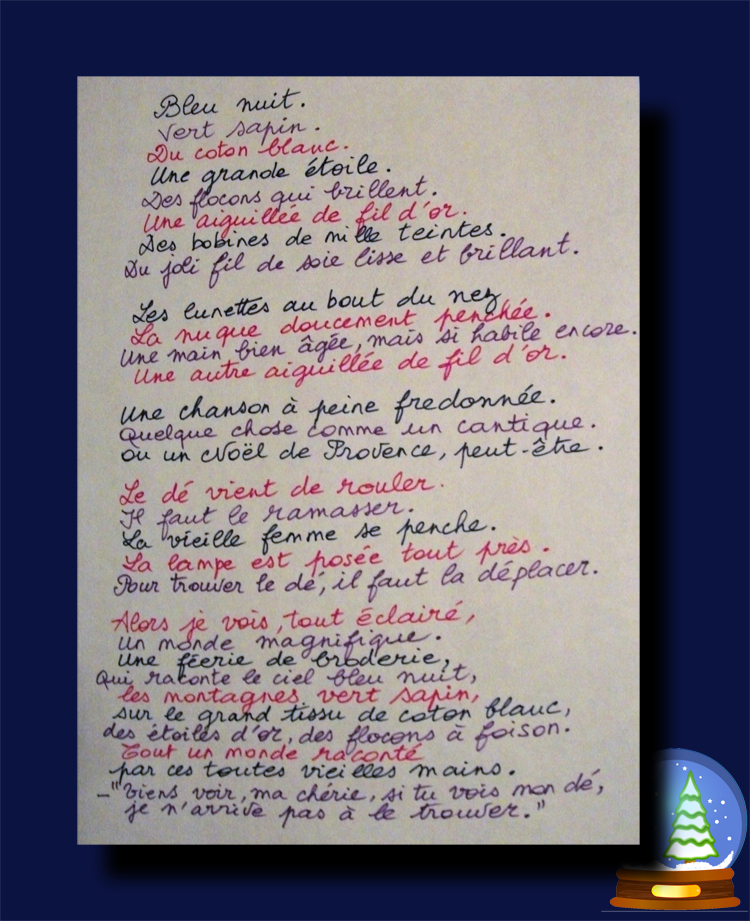 Bleu nuit.
Vert sapin.
Du coton blanc.
Une grande étoile.
Des flocons qui brillent.
Une aiguillée de fil d'or.
Des bobines de mille teintes.
Du joli fil de soie lisse et brillant.
Les lunettes au bout du nez
La nuque doucement penchée.
Une main bien âgée, mais si habile encore.
Une autre aiguillée de fil d'or.
Une chanson à peine fredonnée.
Quelque chose comme un cantique.
Ou un Noël de Provence, peut-être.
Le dé vient de rouler.
Il faut le ramasser.
La vieille femme se penche.
La lampe est posée tout près.
Pour trouver le dé, il faut la déplacer.
Alors je vois, tout éclairé,
Un monde magnifique.
Une féerie de broderie,
Qui raconte le ciel bleu nuit,
les montagnes vert sapin,
sur le grand tissu de coton blanc,
des étoiles d'or, des flocons à foison.
Tout un monde raconté
par ces toutes vieilles mains.
_"Viens voir, ma chérie, si tu vois mon dé,
je n'arrive pas à le trouver."